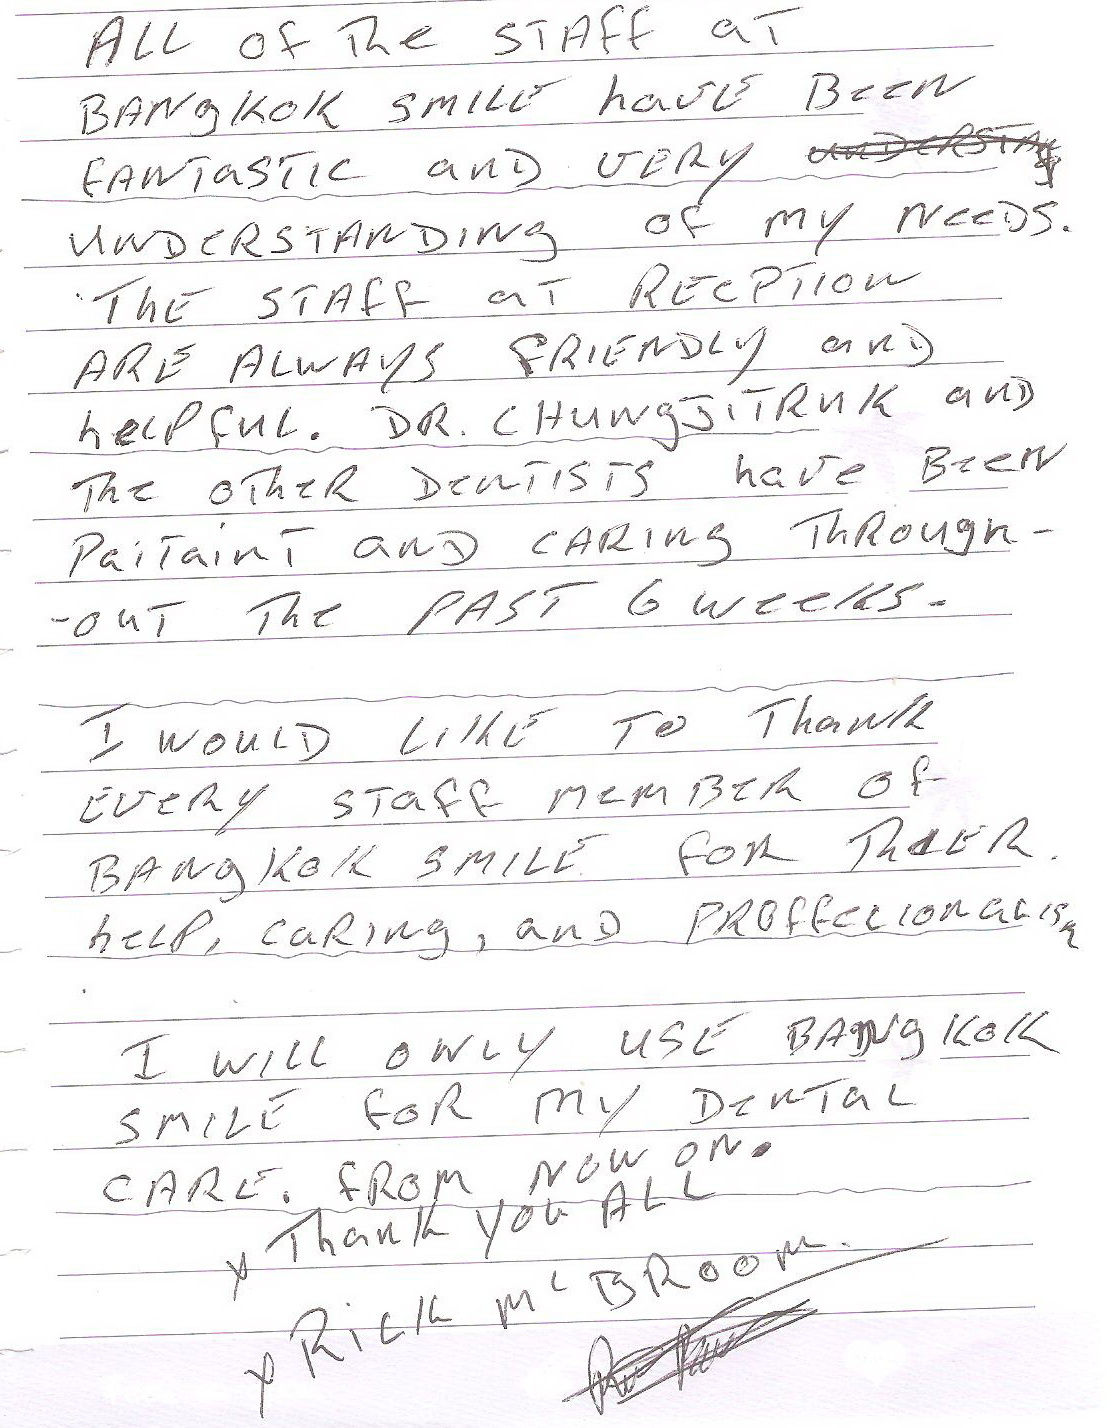 ALL OF The STAFF aT
BANgKOK SMILE haVE BeeN
FANTaSTIC anD VERY unDERSTAN
UNDeRSTANDINg OF MY NeeDS.
THE STAFF aT RECePTION
ARE ALWAYS FRIENDLY anD
heLPFUL. DR. CHUNgJITRUK anD
The OTheR DeNTISTS haVe BeeN
PaiTainT anD CARINg ThROugh-
-OUT The PAST 6 weeKS.
I WOULD LIKE TO ThanK
EVeRY STaFF MeMBeR OF
BANgKOK SMILE FOR TheER.
heLP, CaRINg, anD PROFFeCIONaLISm
I WILL ONLY USE BANgKOK
SMILE FOR MY DeNTaL
CARE. FROM NOW ON.
x ThanK YOU ALL
x RicK McBROOM.